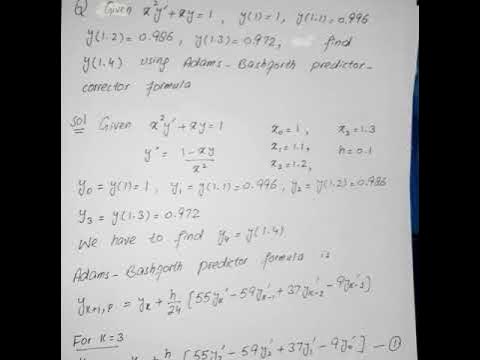 Q Given x²y' + xy = 1 , y(1) = 1, y(1.1) = 0.996
y(1.2) = 0.986 , y(1.3) = 0.972, find
y(1.4) using Adams-Bashforth predictor-
corrector formula
Sol Given x²y' + xy = 1 x₀ = 1 , x₃ = 1.3
y' = (1-xy)/x² x₁ = 1.1, h = 0.1
x₂ = 1.2,
y₀ = y(1) = 1 , y₁ = y(1.1) = 0.996, y₂ = y(1.2) = 0.986
y₃ = y(1.3) = 0.972
We have to find y₄ = y(1.4)
Adams-Bashforth predictor formula is
yₖ₊₁,ₚ = yₖ + h/24 [55yₖ' - 59y'ₖ₋₁ + 37y'ₖ₋₂ - 9y'ₖ₋₃]
For K=3
h/24 [55y₃' - 59y₂' + 37y₁' - 9y₀'] — ①